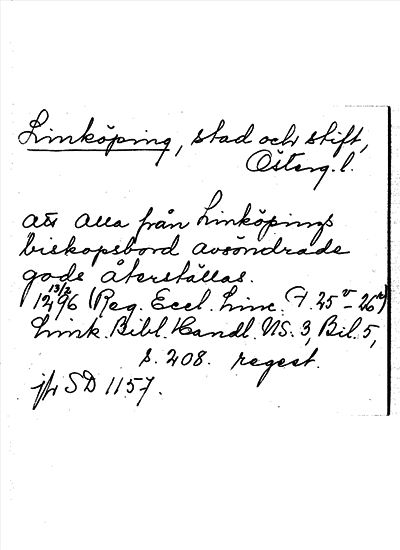 Linköping, stad och stift,
Österg. l.
att alla från Linköpings
biskopsbord avsöndrade
gods återställas.
13/2
1296 (Reg. Eccl. Linc. F. 25v - 26r)
Link. Bibl. Handl. NS. 3, Bil. 5,
s. 208. regest.
jfr SD 1157.